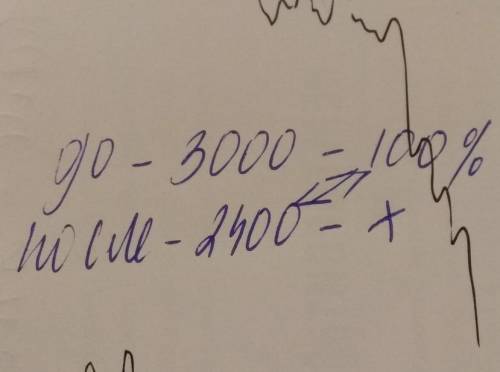 до - 3000 - 100%
после - 2400 - x